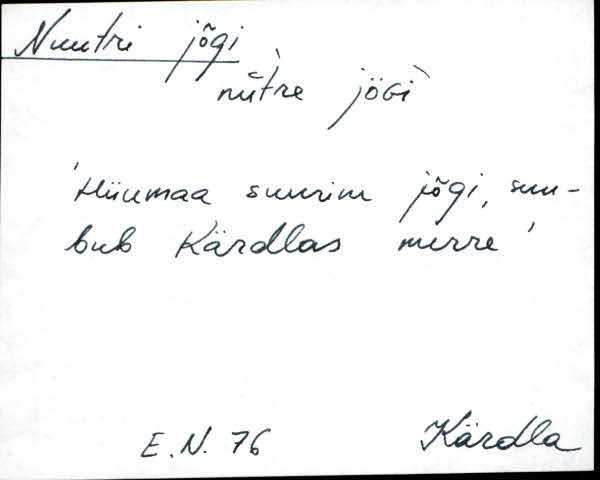 Nuutri jõgi
nūt̀re jöGì
'Hiiumaa suurim jõgi, suu-
bub Kärdlas merre'
E.N. 76 Kärdla